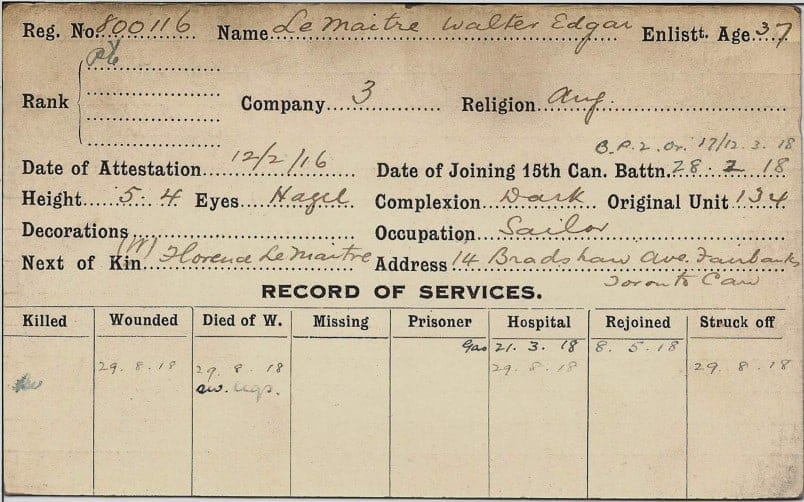 Reg. No. 800116 Name Le Maitre Walter Edgar Enlistt. Age 37
Rank Pte
Company 3 Religion Ang.
B.P.2. Or. 17/12.3.18
Date of Attestation 12/2/16 Date of Joining 15th Can. Battn. 28.2.18
Height 5.4 Eyes Hazel Complexion Dark Original Unit 134
Decorations Occupation Sailor
Next of Kin (W) Florence Le Maitre Address 14 Bradshaw Ave. Fairbanks
Toronto Can
RECORD OF SERVICES.
Killed Wounded Died of W. Missing Prisoner Hospital Rejoined Struck off
Gas 21.3.18 8.5.18
29.8.18 29.8.18 29.8.18 29.8.18
sw. legs.